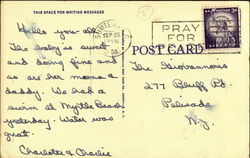 THIS SPACE FOR WRITING MESSAGES
Hello you-all.
The baby is sweet
and doing fine and
so are her mama &
daddy. We had a
swim at Myrtle Beach
yesterday. Water was
great.
Charlotte & Charlie
SUMTER
SEP 25
PM
58
PRAY
FOR
POST CARD
LIBERTY
The Giovannonis
277 Bluff Rd.
Palisade
N.J.